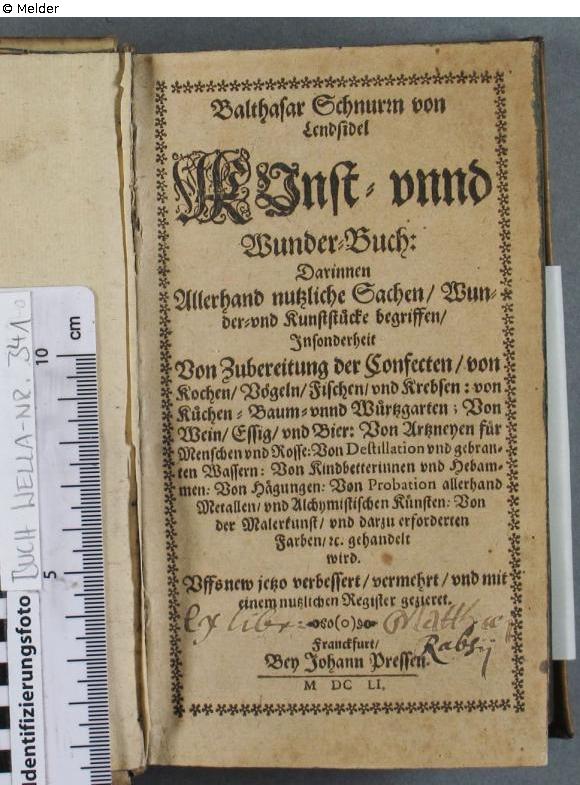 © Melder
Balthasar Schnurm von
Lendsidel
KUnst- vnnd
Wunder-Buch:
Darinnen
Allerhand nutzliche Sachen/ Wun-
der-vnd Kunststücke begriffen/
Insonderheit
Von Zubereitung der Confecten/ von
Kochen/ Vögeln/ Fischen/ vnd Krebsen: von
Küchen-Baum-vnnd Würtzgarten; Von
Wein/ Essig/ vnd Bier: Von Artzneyen für
Menschen vnd Rosse: Von Destillation vnd gebran-
ten Wassern: Von Kindbetterinnen vnd Hebam-
men: Von Hägungen: Von Probation allerhand
Metallen/ vnd Alchymistischen Künsten: Von
der Malerkunst/ vnd darzu erforderten
Farben/ ꝛc. gehandelt
wird.
Vffs new jetzo verbessert/ vermehrt/ vnd mit
einem nutzlichen Register gezieret.
Ex libr: Matthiæ
Rabsij
Franckfurt/
Bey Johann Pressen.
M DC LI.
10 cm
5
BUCH WELLA-NR. 341-0
Identifizierungsfoto